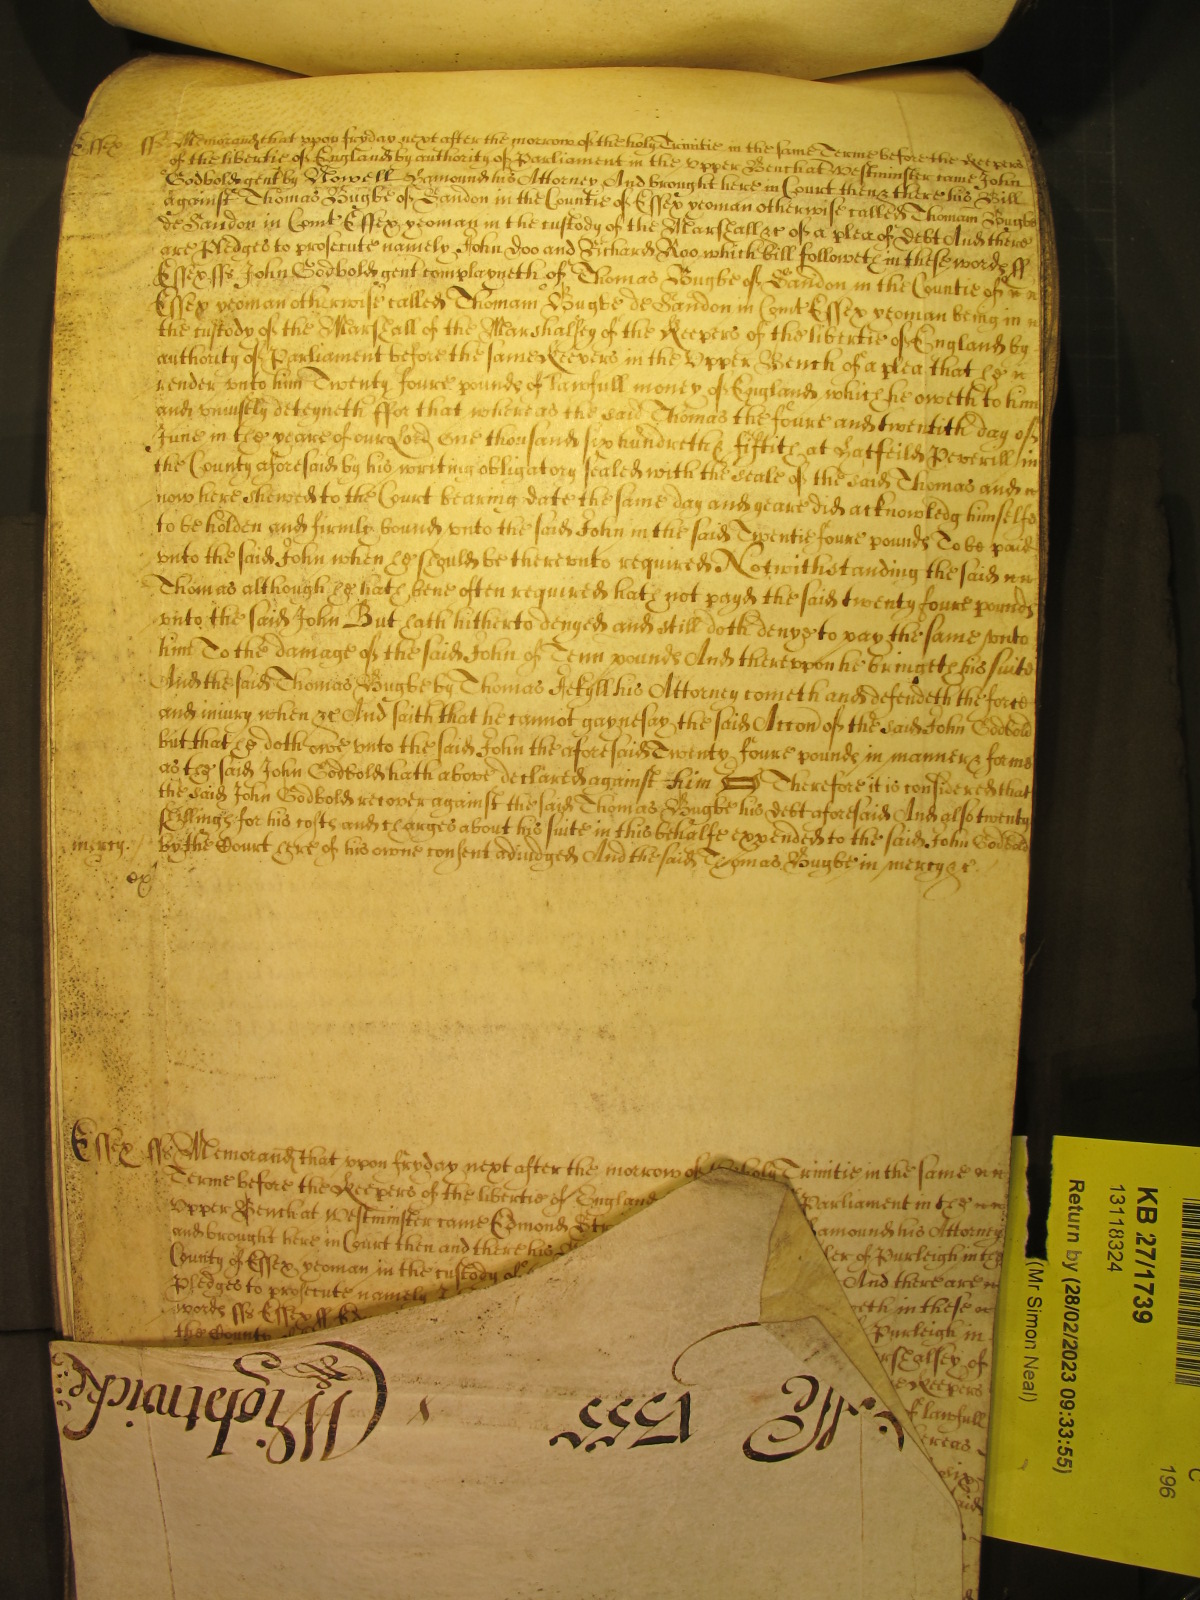 Essex ss Memorand that upon fryday next after the morrow of the holy Trinitie in the same Terme before the Keepers
of the libertie of England by authority of Parliament in the Upper Bench at Westminster came John
Godbold gent by Nowell Hamound his Attorney And brought here in Court then & there his Bill
against Thomas Bugbe of Sandon in the Countie of Essex yeoman otherwise called Thomam Bugbe
de Sandon in Comt Essex yeoman in the custody of the Marshall &c of a plea of debt And there
are Pledges to prosecute namely John Doo and Richard Roo which bill followeth in these words ss
Essex ss John Godbold gent complayneth of Thomas Bugbe of Sandon in the Countie of
Essex yeoman otherwise called Thomam Bugbe de Sandon in Comt Essex yeoman being in
the custody of the Marshall of the Marshalsey of the Keepers of the libertie of England by
authority of Parliament before the same Keepers in the Upper Bench of a plea that he
render unto him Twenty foure pounds of lawfull money of England which he oweth to him
and uniustly deteyneth ffor that whereas the said Thomas the foure and twentith day of
June in the yeare of our Lord One thousand six hundreth & fiftith at Hatfeild Peverill in
the County aforesaid by his writing obligatory sealed with the seale of the said Thomas and
now here shewed to the Court bearing date the same day and yeare did acknowledg himselfe
to be holden and firmly bound unto the said John in the said Twentie foure pounds To be paid
unto the said John when he should be thereunto required Notwithstanding the said
Thomas although he hath bene often required hath not payd the said twenty foure pounds
unto the said John But hath hitherto denyed and still doth denye to pay the same unto
him To the damage of the said John of Tenn pounds And thereuppon he bringeth his suite
And the said Thomas Bugbe by Thomas Jekyll his Attorney cometh and defendeth the force
and iniury when &c And saith that he cannot gaynesay the said Accon of the said John Godbold
but that he doth owe unto the said John the aforesaid Twenty foure pounds in manner & forme
as the said John Godbold hath above declared against him Therefore it is considered that
the said John Godbold recover against the said Thomas Bugbe his debt aforesaid And also twenty
shillings for his costs and charges about his suite in this behalfe expended to the said John Godbold
mercy. by the Court here of his owne consent adiudged And the said Thomas Bugbe in mercy &c
Essex ss Memorand that upon fryday next after the morrow of the holy Trinitie in the same
Terme before the Keepers of the libertie of England Parliament in the
Upper Bench at Westminster came Edmond Hamound his Attorney
and brought here in Court then and there his of Purleigh in the
County of Essex yeoman in the custody of And there are
Pledges to prosecute namely in these
words ss Essex ss Purleigh in
the County of
Keepers
lawfull
whereas
six
said
Wightwicke
1555
KB 27/1739
13118324
Return by (28/02/2023 09:33:55)
(Mr Simon Neal)
C
196